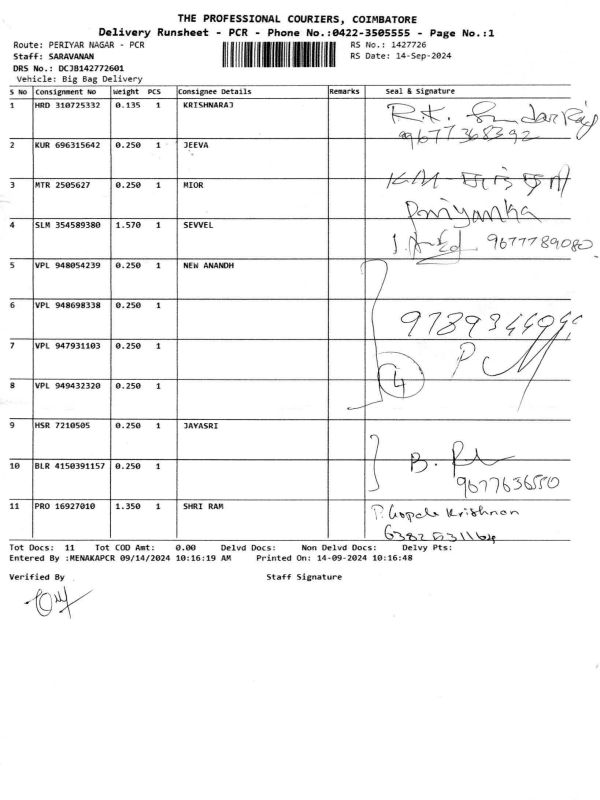 THE PROFESSIONAL COURIERS, COIMBATORE
Delivery Runsheet - PCR - Phone No.:0422-3505555 - Page No.:1
Route: PERIYAR NAGAR - PCR RS No.: 1427726
Staff: SARAVANAN RS Date: 14-Sep-2024
DRS No.: DCJB142772601
Vehicle: Big Bag Delivery
S No Consignment No Weight PCS Consignee Details Remarks Seal & Signature
1 HRD 310725332 0.135 1 KRISHNARAJ R.K.
9677368392
2 KUR 696315642 0.250 1 JEEVA
3 MTR 2505627 0.250 1 MIOR KM
Priyanka
4 SLM 354589380 1.570 1 SEVVEL 9677789080
5 VPL 948054239 0.250 1 NEW ANANDH
6 VPL 948698338 0.250 1
7 VPL 947931103 0.250 1
8 VPL 949432320 0.250 1 4
9 HSR 7210505 0.250 1 JAYASRI
10 BLR 4150391157 0.250 1 B.
9677636550
11 PRO 16927010 1.350 1 SHRI RAM P. Gopala Krishnan
Tot Docs: 11 Tot COD Amt: 0.00 Delvd Docs: Non Delvd Docs: Delvy Pts:
Entered By :MENAKAPCR 09/14/2024 10:16:19 AM Printed On: 14-09-2024 10:16:48
Verified By Staff Signature